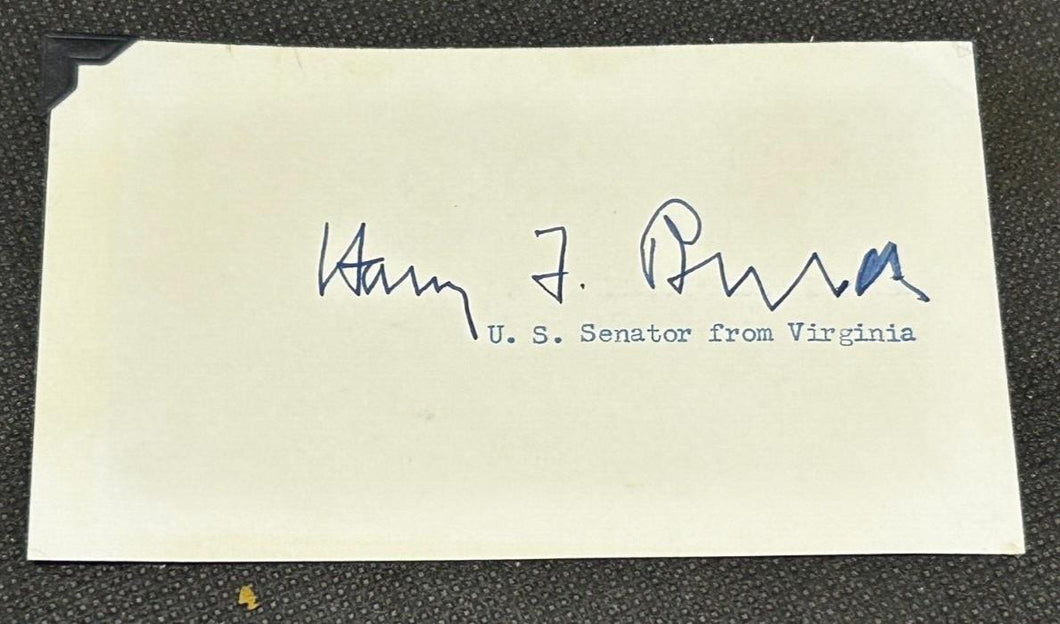 Harry F. Byrd
U. S. Senator from Virginia